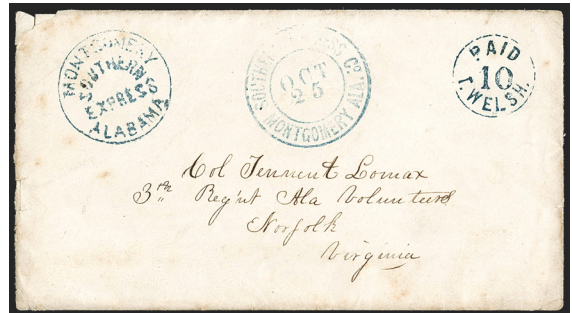 MONTGOMERY
SOUTHERN
EXPRESS
ALABAMA
SOUTHERN EXPRESS Co
OCT
25
MONTGOMERY ALA.
PAID
10
T. WELSH.
Col Tennent Lomax
3rd Reg'nt Ala Volunteers
Norfolk
Virginia